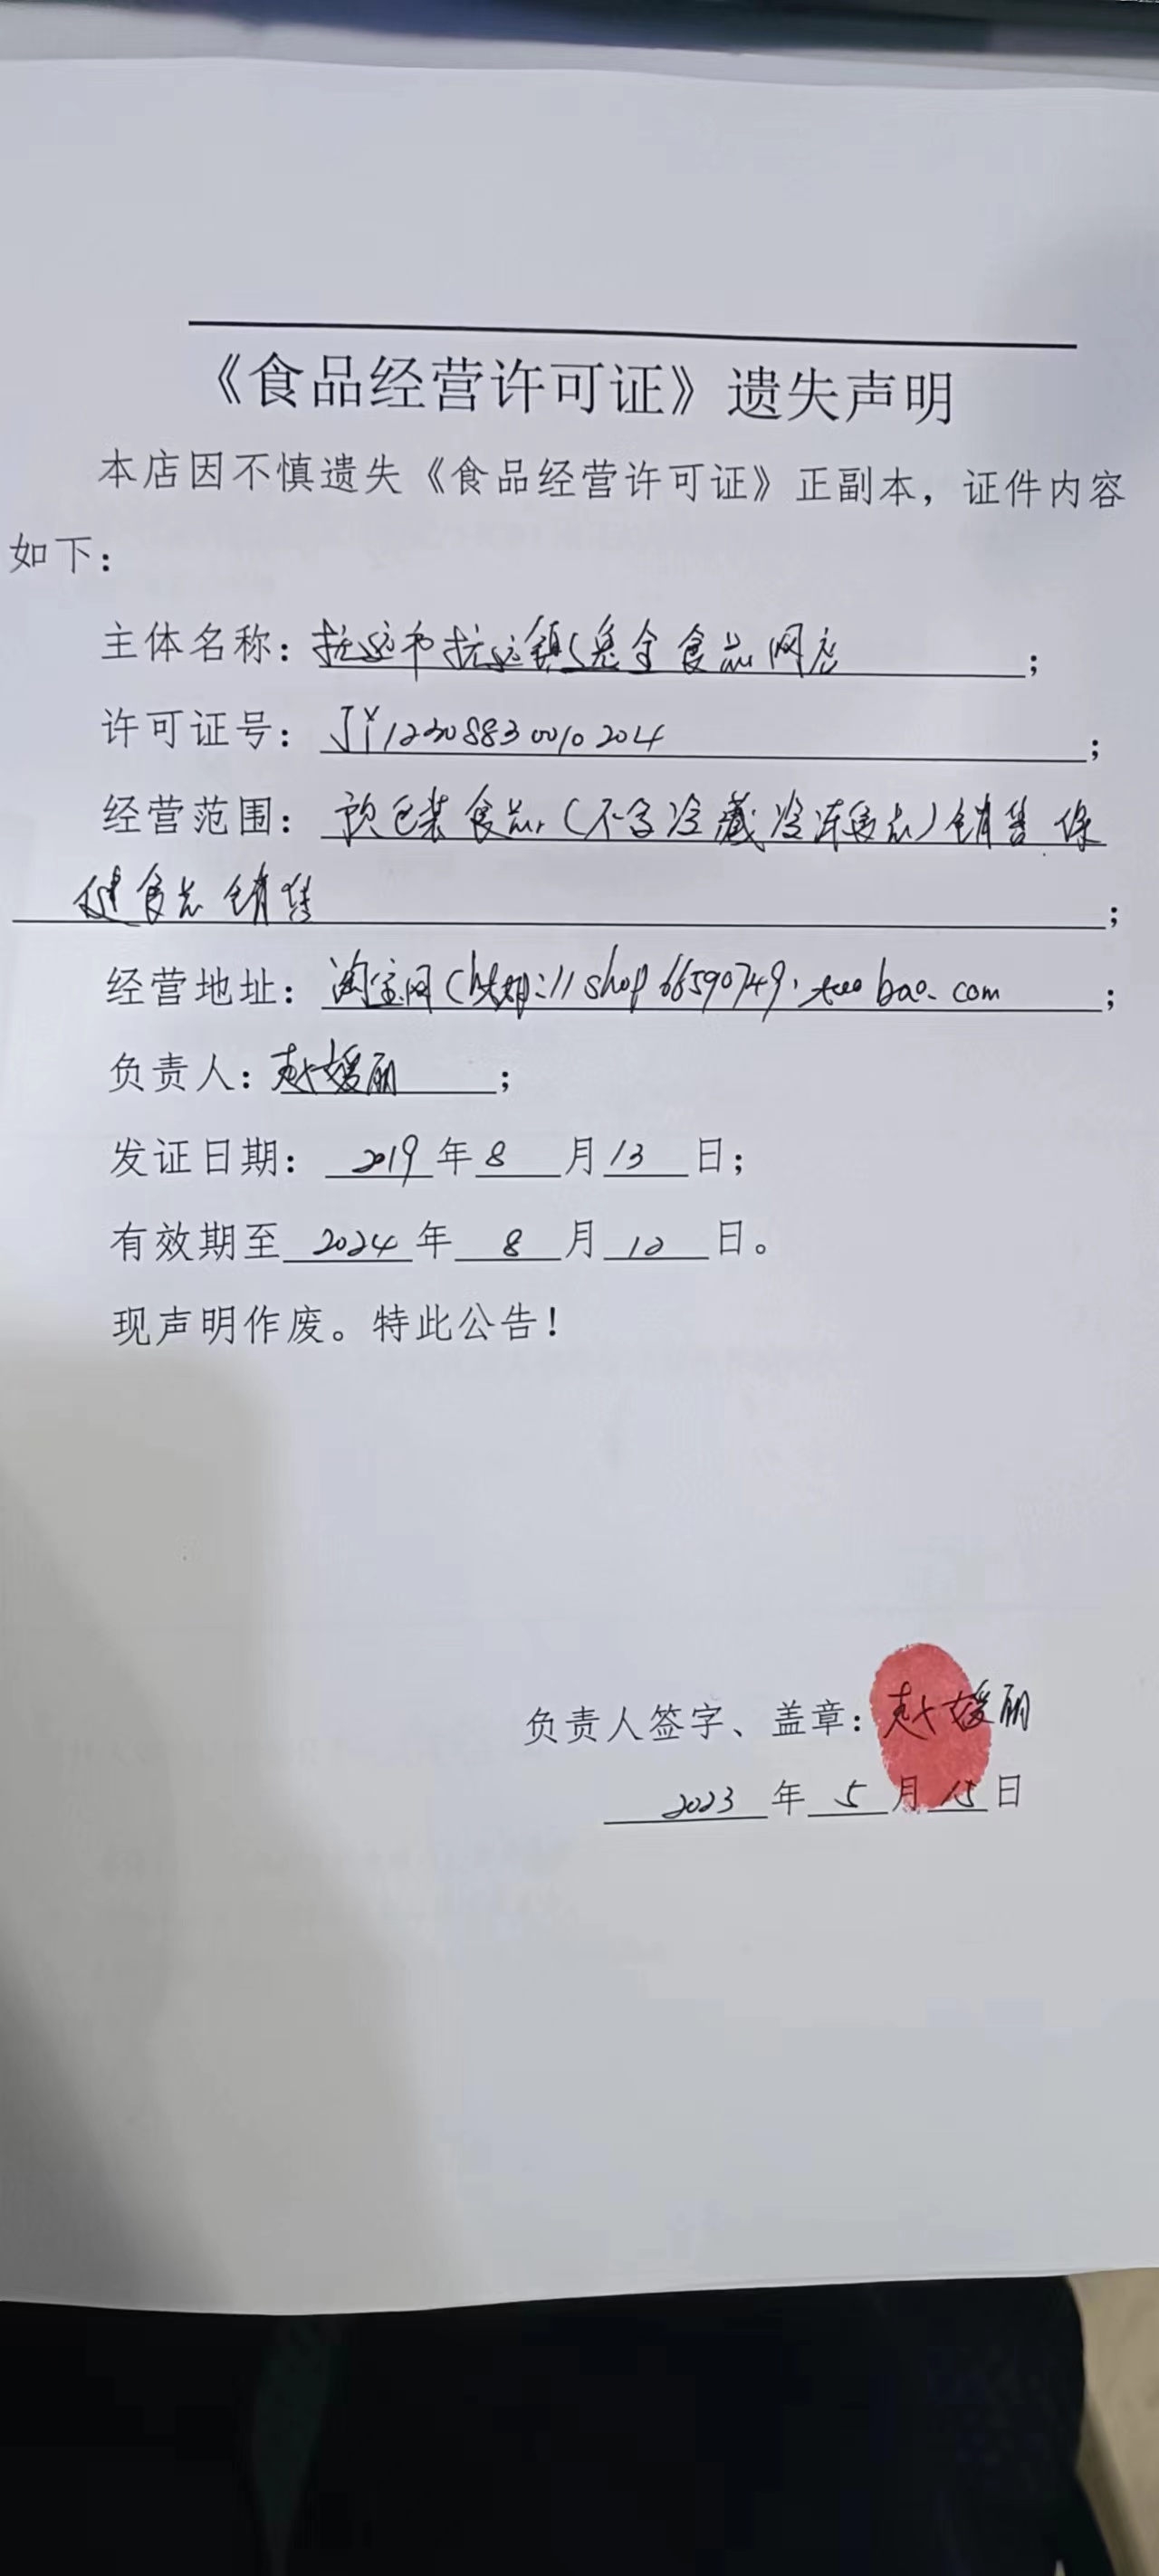 《食品经营许可证》遗失声明
本店因不慎遗失《食品经营许可证》正副本，证件内容
如下：
主体名称：抚远市抚远镇逸全食品网店；
许可证号：JY12308830010204；
经营范围：预包装食品（不含冷藏冷冻食品）销售 保
健食品销售；
经营地址：淘宝网（http://shop66590749.taobao.com；
负责人：赵媛丽；
发证日期：2019年8月13日；
有效期至2024年8月12日。
现声明作废。特此公告！
负责人签字、盖章：赵媛丽
2023年5月15日